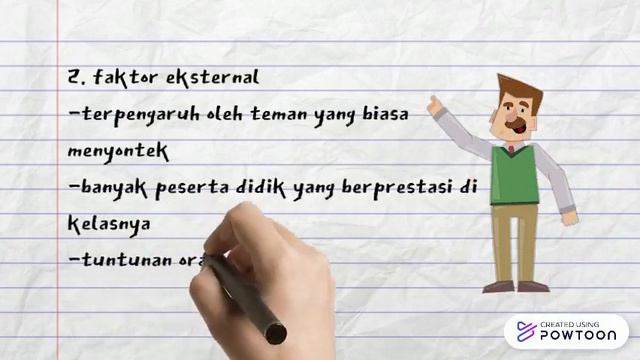 2. faktor eksternal
-terpengaruh oleh teman yang biasa
menyontek
-banyak peserta didik yang berprestasi di
kelasnya
-tuntunan
CREATED USING
POWTOON